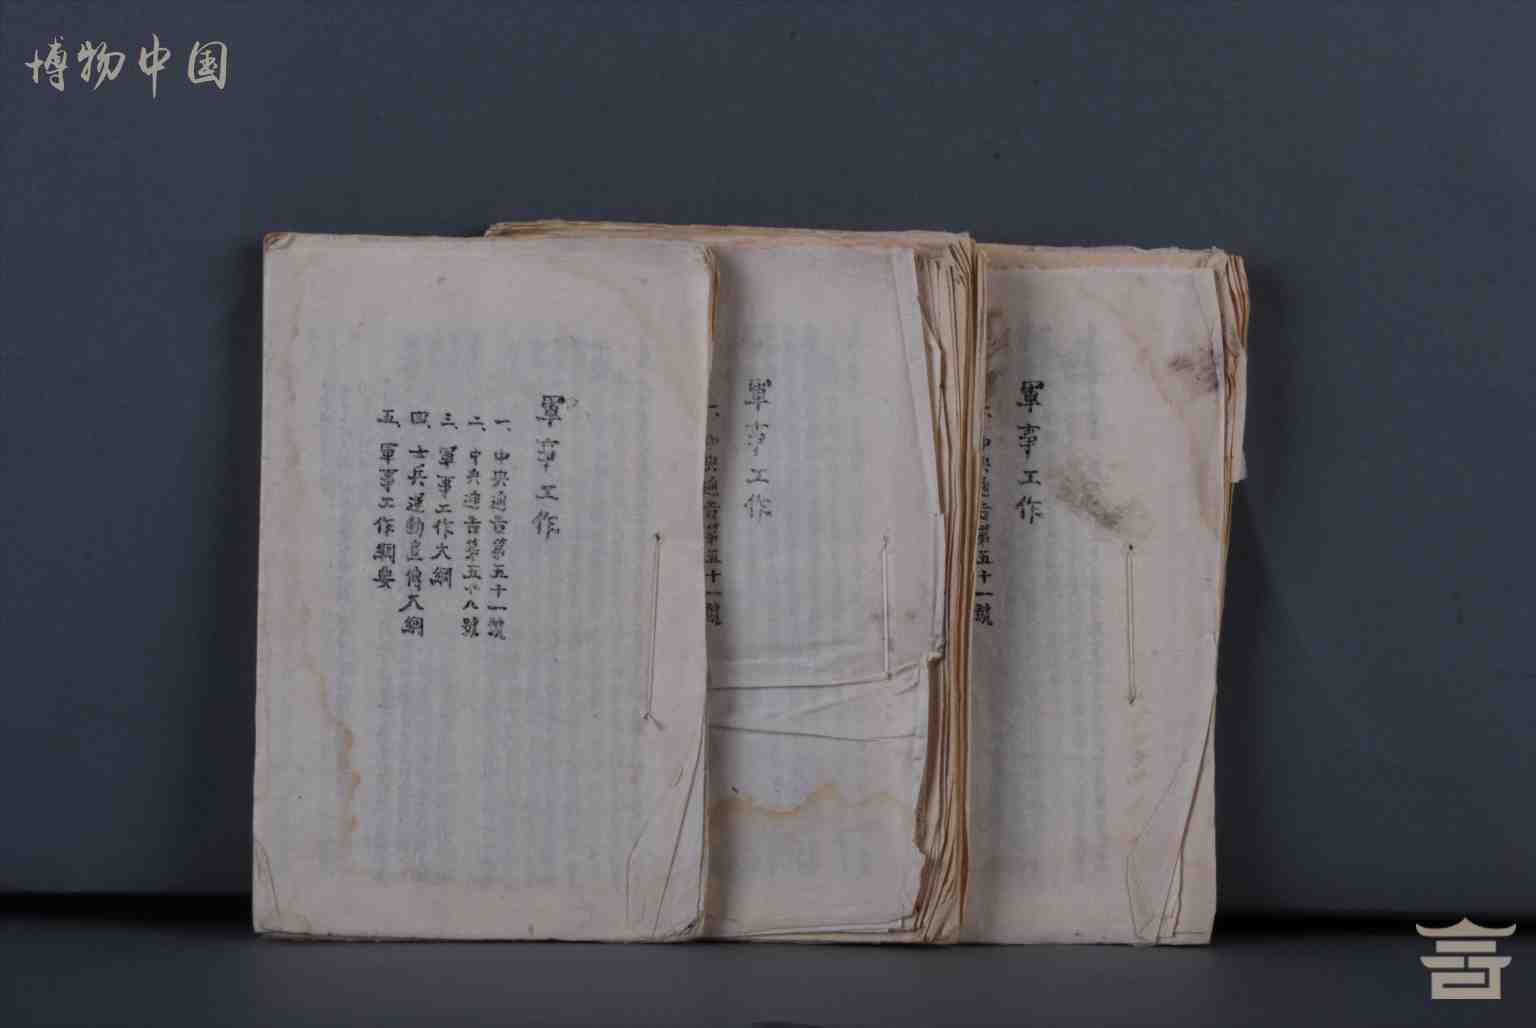 博物中国
軍事工作
一、中央通告第五十一號
二、中央通告第五十八號
三、軍事工作大綱
四、士兵運動宣傳大綱
五、軍事工作綱要
軍事工作
一、中央通告第五十一號
軍事工作
一、中央通告第五十一號